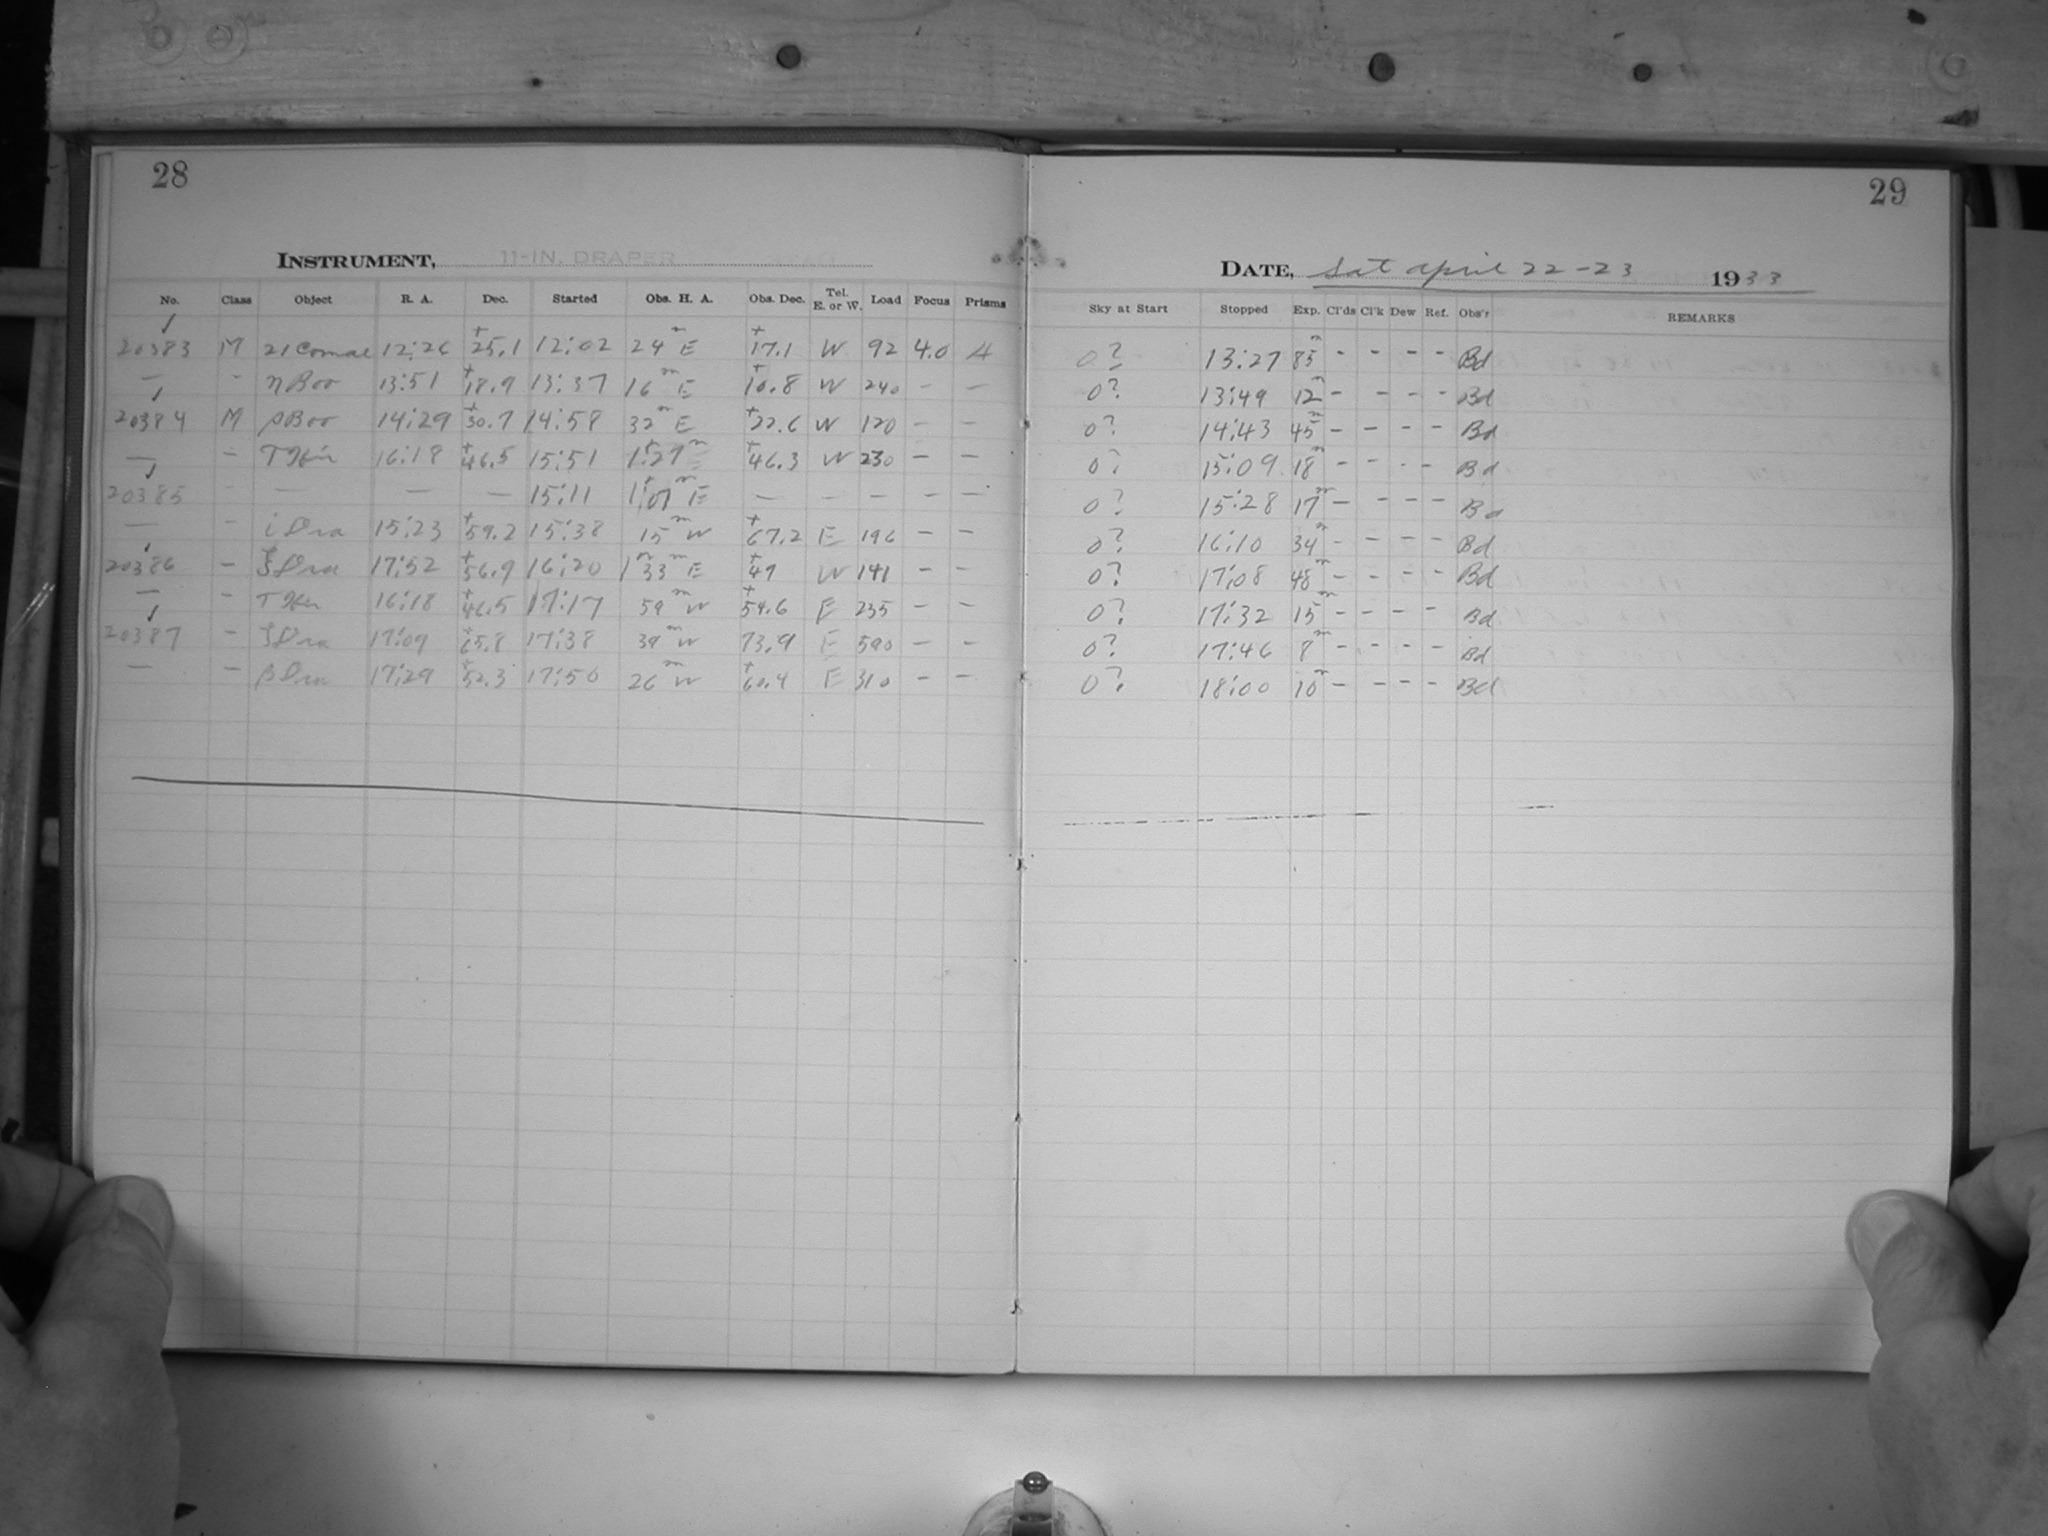 28
INSTRUMENT, 11-IN. DRAPER
No. Class Object R. A. Dec. Started Obs. H. A. Obs. Dec. Tel. E. or W. Load Focus Prisms
20383 M 21 Comae 12:26 +25.1 12:02 24m E +17.1 W 92 4.0 4
— - η Boo 13:51 +18.9 13:37 16m E +10.8 W 240 - -
20384 M ρ Boo 14:29 +30.7 14:58 32m E +22.6 W 120 - -
— - τ Her 16:18 +46.5 15:51 1:27m E +46.3 W 230 - -
20385 - — — — 15:11 1h07m E — — — - -
— - i Dra 15:23 +59.2 15:38 15m W +67.2 E 196 - -
20386 - ξ Dra 17:52 +56.9 16:20 1h33m E +49 W 141 - -
— - τ Her 16:18 +46.5 17:17 59m W +54.6 E 235 - -
20387 - ζ Dra 17:09 +65.8 17:38 39m W 73.9 E 590 - -
— - β Dra 17:29 +52.3 17:50 26m W +60.4 E 310 - -
29
DATE, Sat April 22-23 1933
Sky at Start Stopped Exp. Cl'ds Cl'k Dew Ref. Obs'r REMARKS
0? 13:27 85m - - - - Bd
0? 13:49 12m - - - - Bd
0? 14:43 45m - - - - Bd
0? 15:09 18m - - - - Bd
0? 15:28 17m - - - - Bd
0? 16:10 34m - - - - Bd
0? 17:08 48m - - - - Bd
0? 17:32 15m - - - - Bd
0? 17:46 8m - - - - Bd
0? 18:00 10m - - - - Bd